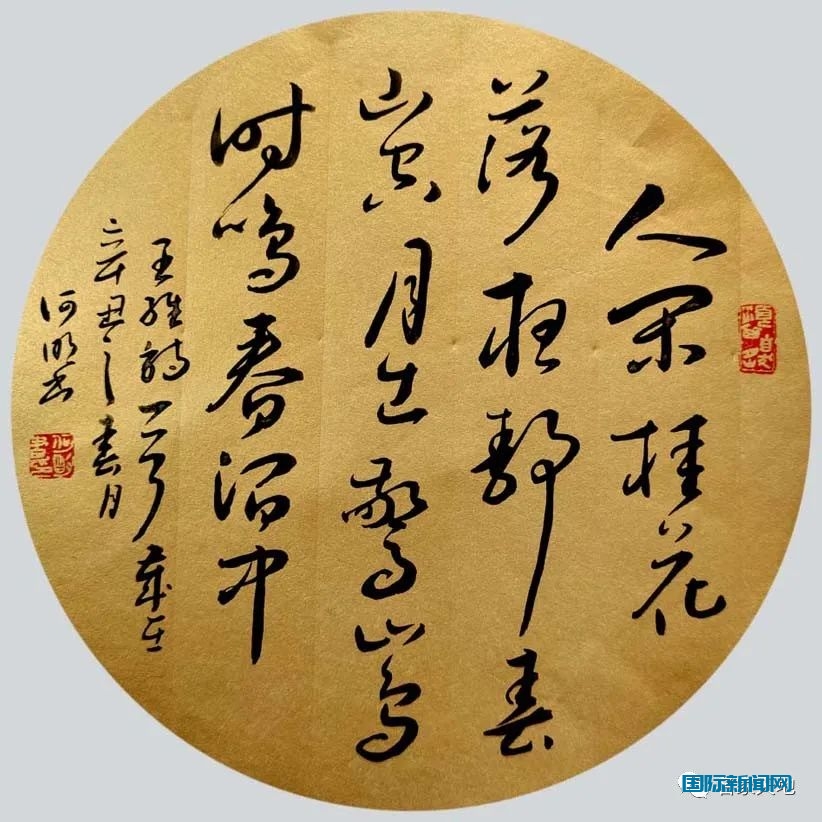 人闲桂花
落夜静春
山空月出驚山鸟
时鸣春涧中
王维诗一首岁在
辛丑之春月
何明书
国际新闻网